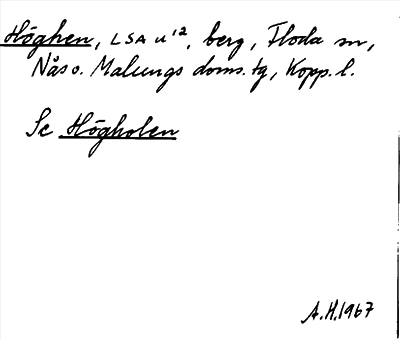 Höghen, LSA u'², berg, Floda sn,
Nås o. Malungs doms. tg, Kopp. l.
Se Högholen
A.H. 1967